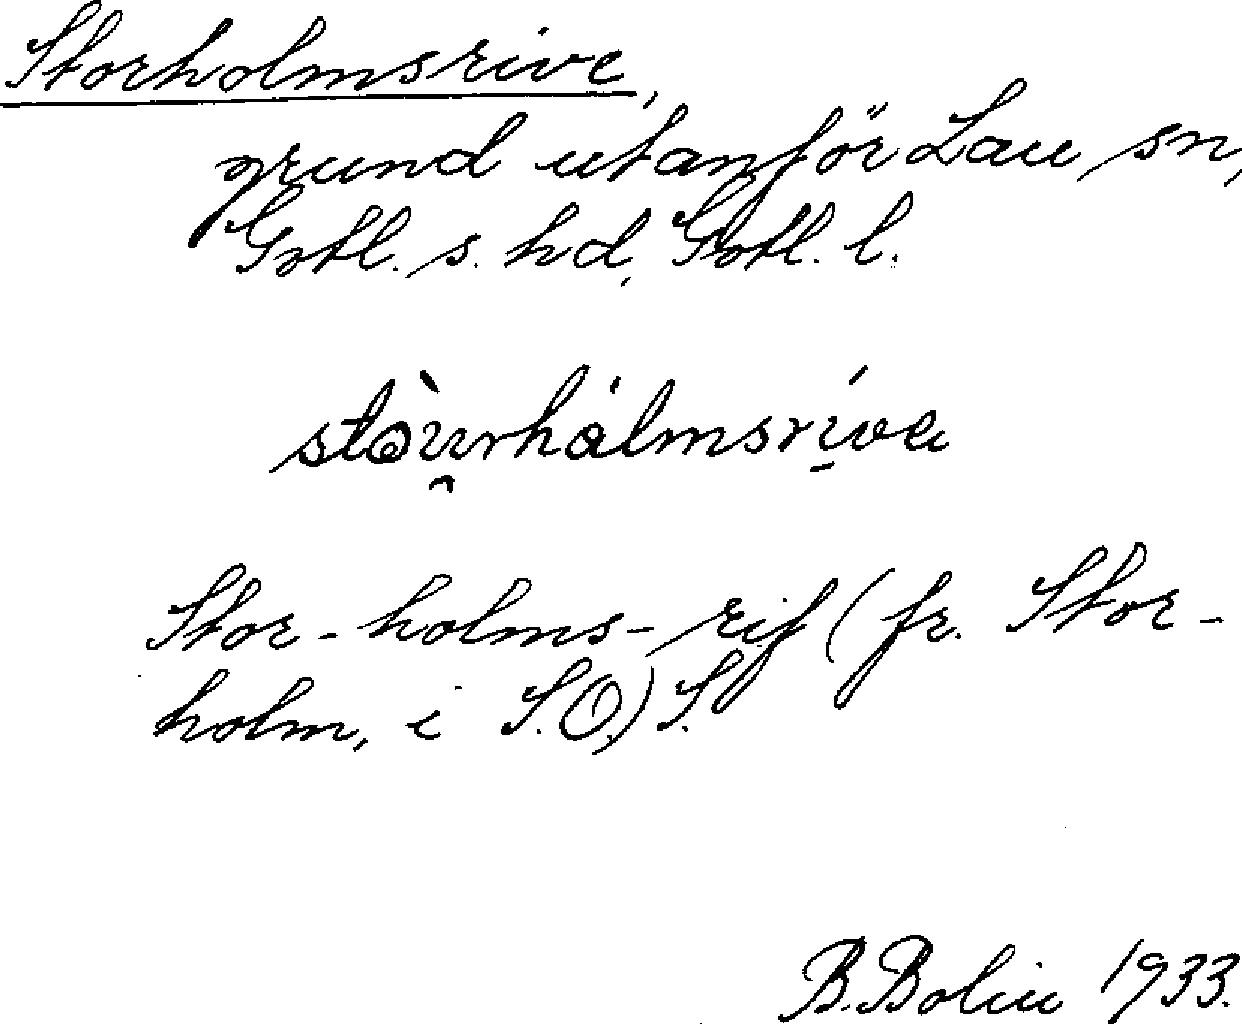 Storholmsrive,
grund utanför Lau sn,
Gotl. s. hd, Gotl. l.
stòu̯rhålmsríva
Stor-holms-rif (fr. Stor-
holm, i S.O.) S.
B. Bolin 1933.